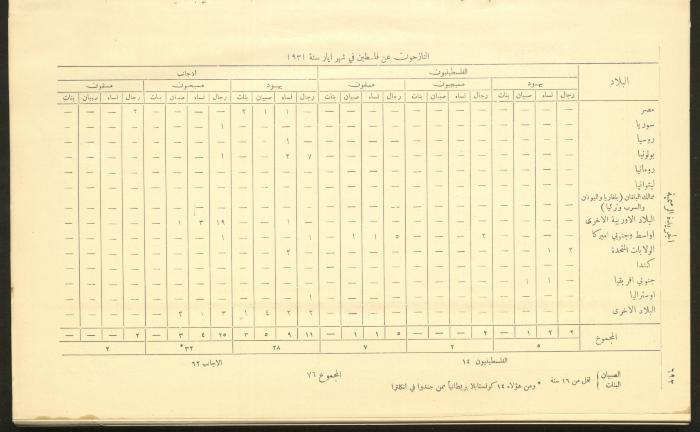 النازحون عن فلسطين في شهر ايار سنة ١٩٣١
البلاد الفلسطينيون الاجانب
يهود مسيحيون مسلمون يهود مسيحيون مسلمون
رجال نساء صبيان بنات رجال نساء صبيان بنات رجال نساء صبيان بنات رجال نساء صبيان بنات رجال نساء صبيان بنات رجال نساء صبيان بنات
مصر — — — — — — — — — — — — — ١ ١ ٢ — — — — ٢ — — —
سوريا — — — — — — — — — — — — — — — — ١ — — — — — — —
روسيا — — — — — — — — — — — — — ١ — — — — — — — — — —
بولونيا — — — — — — — — — — — — ٧ ٢ — — ١ — — — — — — —
رومانيا — — — — — — — — — — — — — — — — — — — — — — — —
ليتوانيا — — — — — — — — — — — — — — — — — — — — — — — —
ممالك البلقان (بلغاريا واليونان
والصرب وتركيا) — — — — — — — — — — — — — — — — — — — — — — — —
البلاد الاوربية الاخرى — — — — — — — — — — — — — ١ — — ١٩ ٣ ١ — — — — —
اواسط وجنوبي اميركا — — — — ٢ — — — ٥ ١ ١ — ١ — — — ١ — — — — — — —
الولايات المتحدة ٢ ١ — — — — — — — — — — — ٢ — — — — — — — — — —
كندا — — — — — — — — — — — — — — — — — — — — — — — —
جنوبي افريقيا — ١ ١ — — — — — — — — — — — — — — — — — — — — —
اوستراليا — — — — — — — — — — — — ١ — — — — — — — — — — —
البلاد الاخرى — — — — — — — — — — — — ٢ ٢ ٤ ١ ٣ ١ ٢ — — — — —
المجموع ٢ ٢ ١ — ٢ — — — ٥ ١ ١ — ١١ ٩ ٥ ٣ ٢٥ ٤ ٣ — ٢ — — —
٥ ٢ ٧ ٢٨ ٣٢* ٢
الفلسطينيون ١٤ الاجانب ٦٢
المجموع ٧٦
الصبيان
البنات
} اقل من ١٦ سنة * ومن هؤلاء ١٤ كونستابلا بريطانياً ممن جندوا في انكلترا
الجريدة الرسمية
٦٩٣